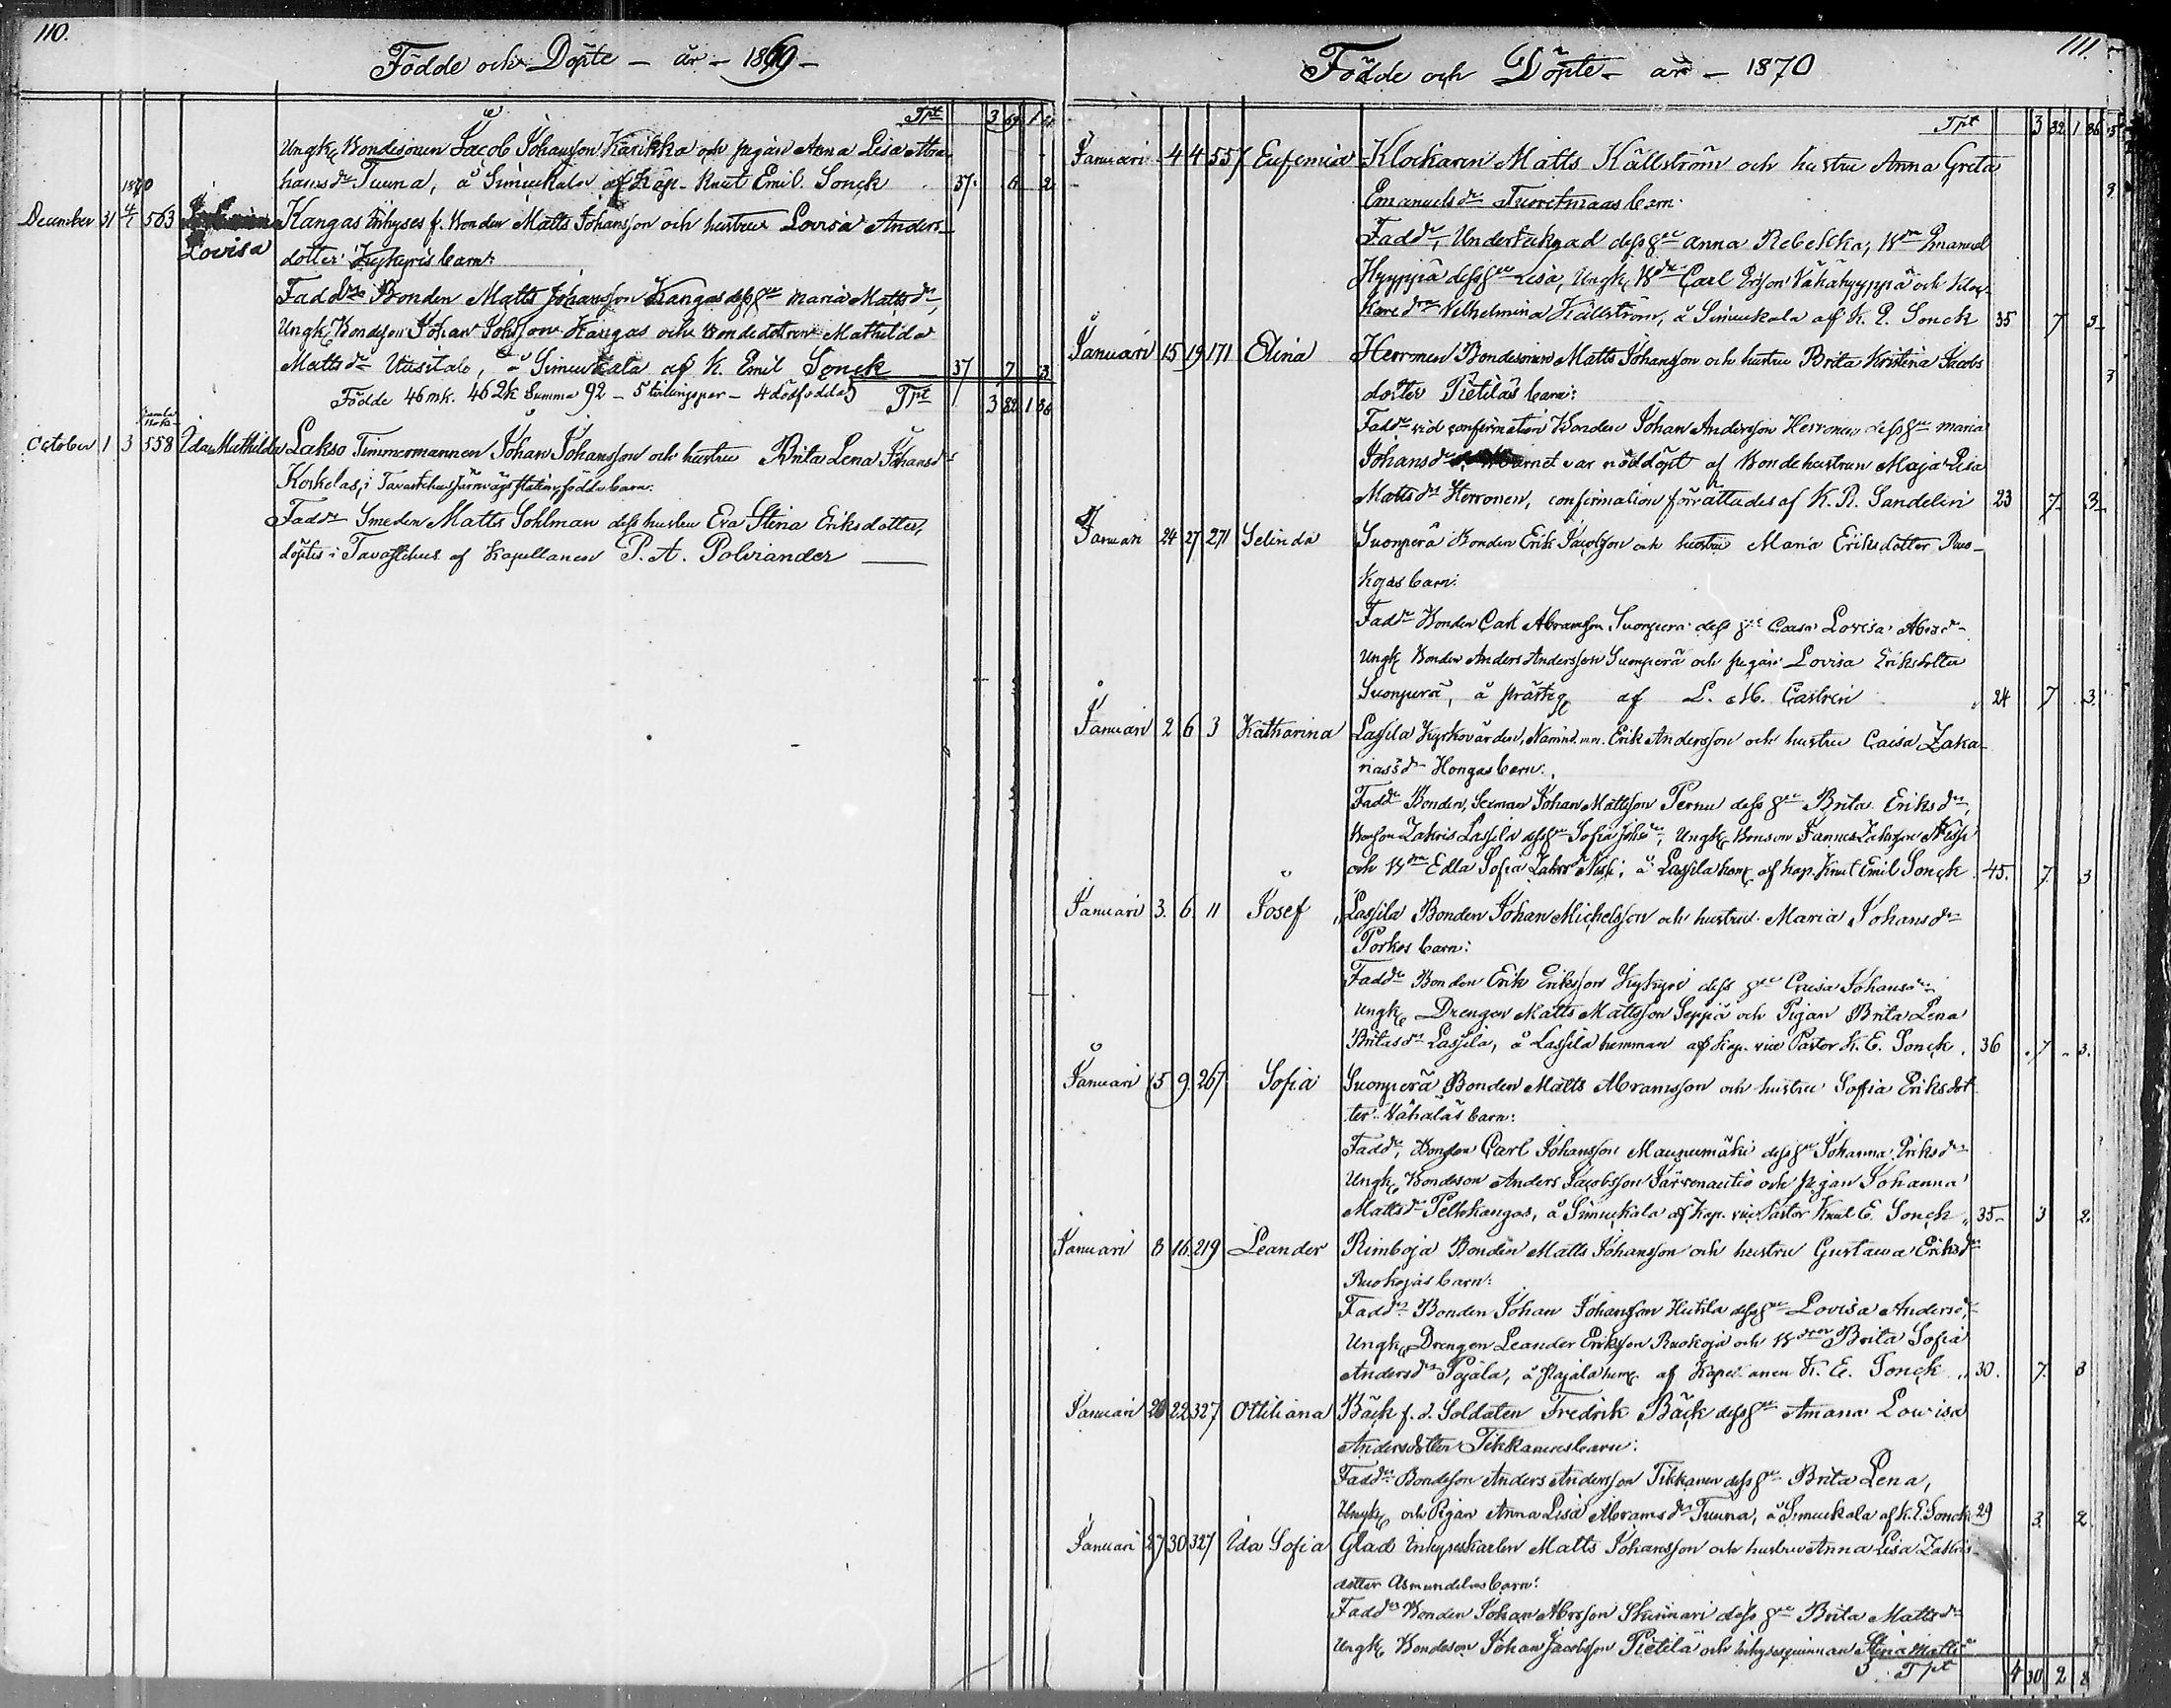 110.
Födde och Döpte - år - 1869 -
Tpt 3 69 1
Ungk. Bondesonen Jacob Johansson Karikka och pigan Anna Lisa Abra-
hamsdr Tuuna, å Simuukala af Kap. Knut Emil Sonck 37. 6 2
1870
December 31 4/1 563 Lovisa Kangas Inhyses f. Bonden Matts Johansson och hustru Lovisa Anders-
dotter Kykyris barn:
Faddr Bonden Matts Johansson Kangas dess hu Maria Mattsdr,
Ungk. Bondeson Johan Johsson Kangas och Bondedottren Mathilda
Mattsdr Uusitalo, å Simuukala af K. Emil Sonck 37 7 3
Födde 46 mk. 46 qk Summa 92 - 5 tvillingspar - 4 dödfödda Tpt 3 82 1 86
October 1 3 558 Ida Mathilda Lakso Timmermannen Johan Johansson och hustru Brita Lena Johansdr
Korkelas, i Tavastehus Järnvägs station födda barn.
Faddr Smeden Matts Sohlman dess hustru Eva Stina Eriksdotter,
döptes i Tavastehus af Kapellanen P. A. Polviander
111.
Födde och Döpte - år - 1870
Tpt 3 82 1 86
Januari 4 4 557 Eufemia Klockaren Matts Källström och hustru Anna Greta
Emanuelsdr Tuoretmaas barn.
Faddr, Undertecknad dess hu Anna Rebekka, Bdn Emanuel
Hyyppiä dess hu Lisa, Ungk. Carl Ersson Vähähyyppiä och Kloc-
karedr Vilhelmina Källström, å Simuukala af K. E. Sonck 35 7 3
Januari 15 19 171 Elina Herronen Bondesonen Matts Johansson och hustru Brita Kristina Jacobs
dotter Pietiläs barn:
Faddr vid confirmation Bonden Johan Andersson Herronen dess hu Maria
Johansdr Barnet var nöddöpt af Bondehustrun Maja Lisa
Mattsdr Herronen, confirmation förrättades af K. R. Sandelin 23 7 3
Januari 24 27 271 Selinda Suonperä Bonden Erik Jacobsson och hustru Maria Eriksdotter Ruo-
kojas barn:
Faddr Bonden Carl Abramsson Suonperä dess hu Caisa Lovisa
Ungk Bonden Anders Andersson Suonperä och pigan Lovisa Eriksdotter
Suonperä, å prästg af L. M. Castrén 24 7 3.
Januari 2 6 3 Katharina Lassila Kyrkovärden, Nämnd.m. Erik Andersson och hustru Caisa Zaka-
riasdr Hongas barn.
Faddr Bonden, Sexman Johan Mattsson Pernu dess hu Brita Eriksdr,
Bonson Zakris Lassila dess hu Sofia Johsdr, Ungk. Bonson Zakrsson Nissi
och Bdn Edla Sofia Zakrsdr Nissi, å Lassila hem. af Kap. Knut Emil Sonck 45. 7. 3
Januari 3. 6 11 Josef Lassila Bonden Johan Michelsson och hustru Maria Johansdr
Porkos barn:
Faddr Bonden Erik Eriksson Kykyri dess hu Caisa Johansdr
Ungk. Drengen Matts Mattsson Seppä och Pigan Brita Lena
Britasdr Lassila, å Lassila hemman af Kap. vice Pastor K. E. Sonck. 36 7 3.
Januari 5 9 267 Sofia Suonperä Bonden Matts Abramsson och hustru Soffia Eriksdot
ter Vähäläs barn:
Faddr, Bonden Carl Johansson Maunumäki dess hu Johanna Eriksdr
Ungk. Bondeson Anders Jacobsson Järvenautio och pigan Johanna
Mattsdr Pelkkangas, å Simuukala af Kap. vice Pastor Knut E. Sonck 35 3 2
Januari 8 16 219 Leander Rimboja Bonden Matts Johansson och hustru Gustawa Eriksdr
Ruokojas barn:
Faddr Bonden Johan Johansson Huhla dess hu Lovisa Andersdr,
Ungk. Drengen Leander Eriksson Ruokoja och Brita Sofia
Andersdr Pajala, å Pajala hem. af Kapellanen K. E. Sonck 30. 7. 3
Januari 20 22 327 Ottiliana Bäck f. d. Soldaten Fredrik Bäck dess hu Amana Lowisa
Andersdotter Tikkanens barn:
Faddr Bondeson Anders Andersson Tikkanen dess hu Brita Lena,
Ungk. och Pigan Anna Lisa Abramsdr Tuuna, å Simuukala af K. E. Sonck 29 3. 2
Januari 27 30 327 Ida Sofia Glad Inhyseskarlen Matts Johansson och hustru Anna Lisa Zakris-
dotter Asmundelas barn:
Faddr Bonden Johan Abrsson Skinnari dess hu Brita Mattsdr
Ungk. Bondeson Johan Jacobsson Pietilä och inhysesqvinnan Stina Matts
Tpt 4 30 2 8